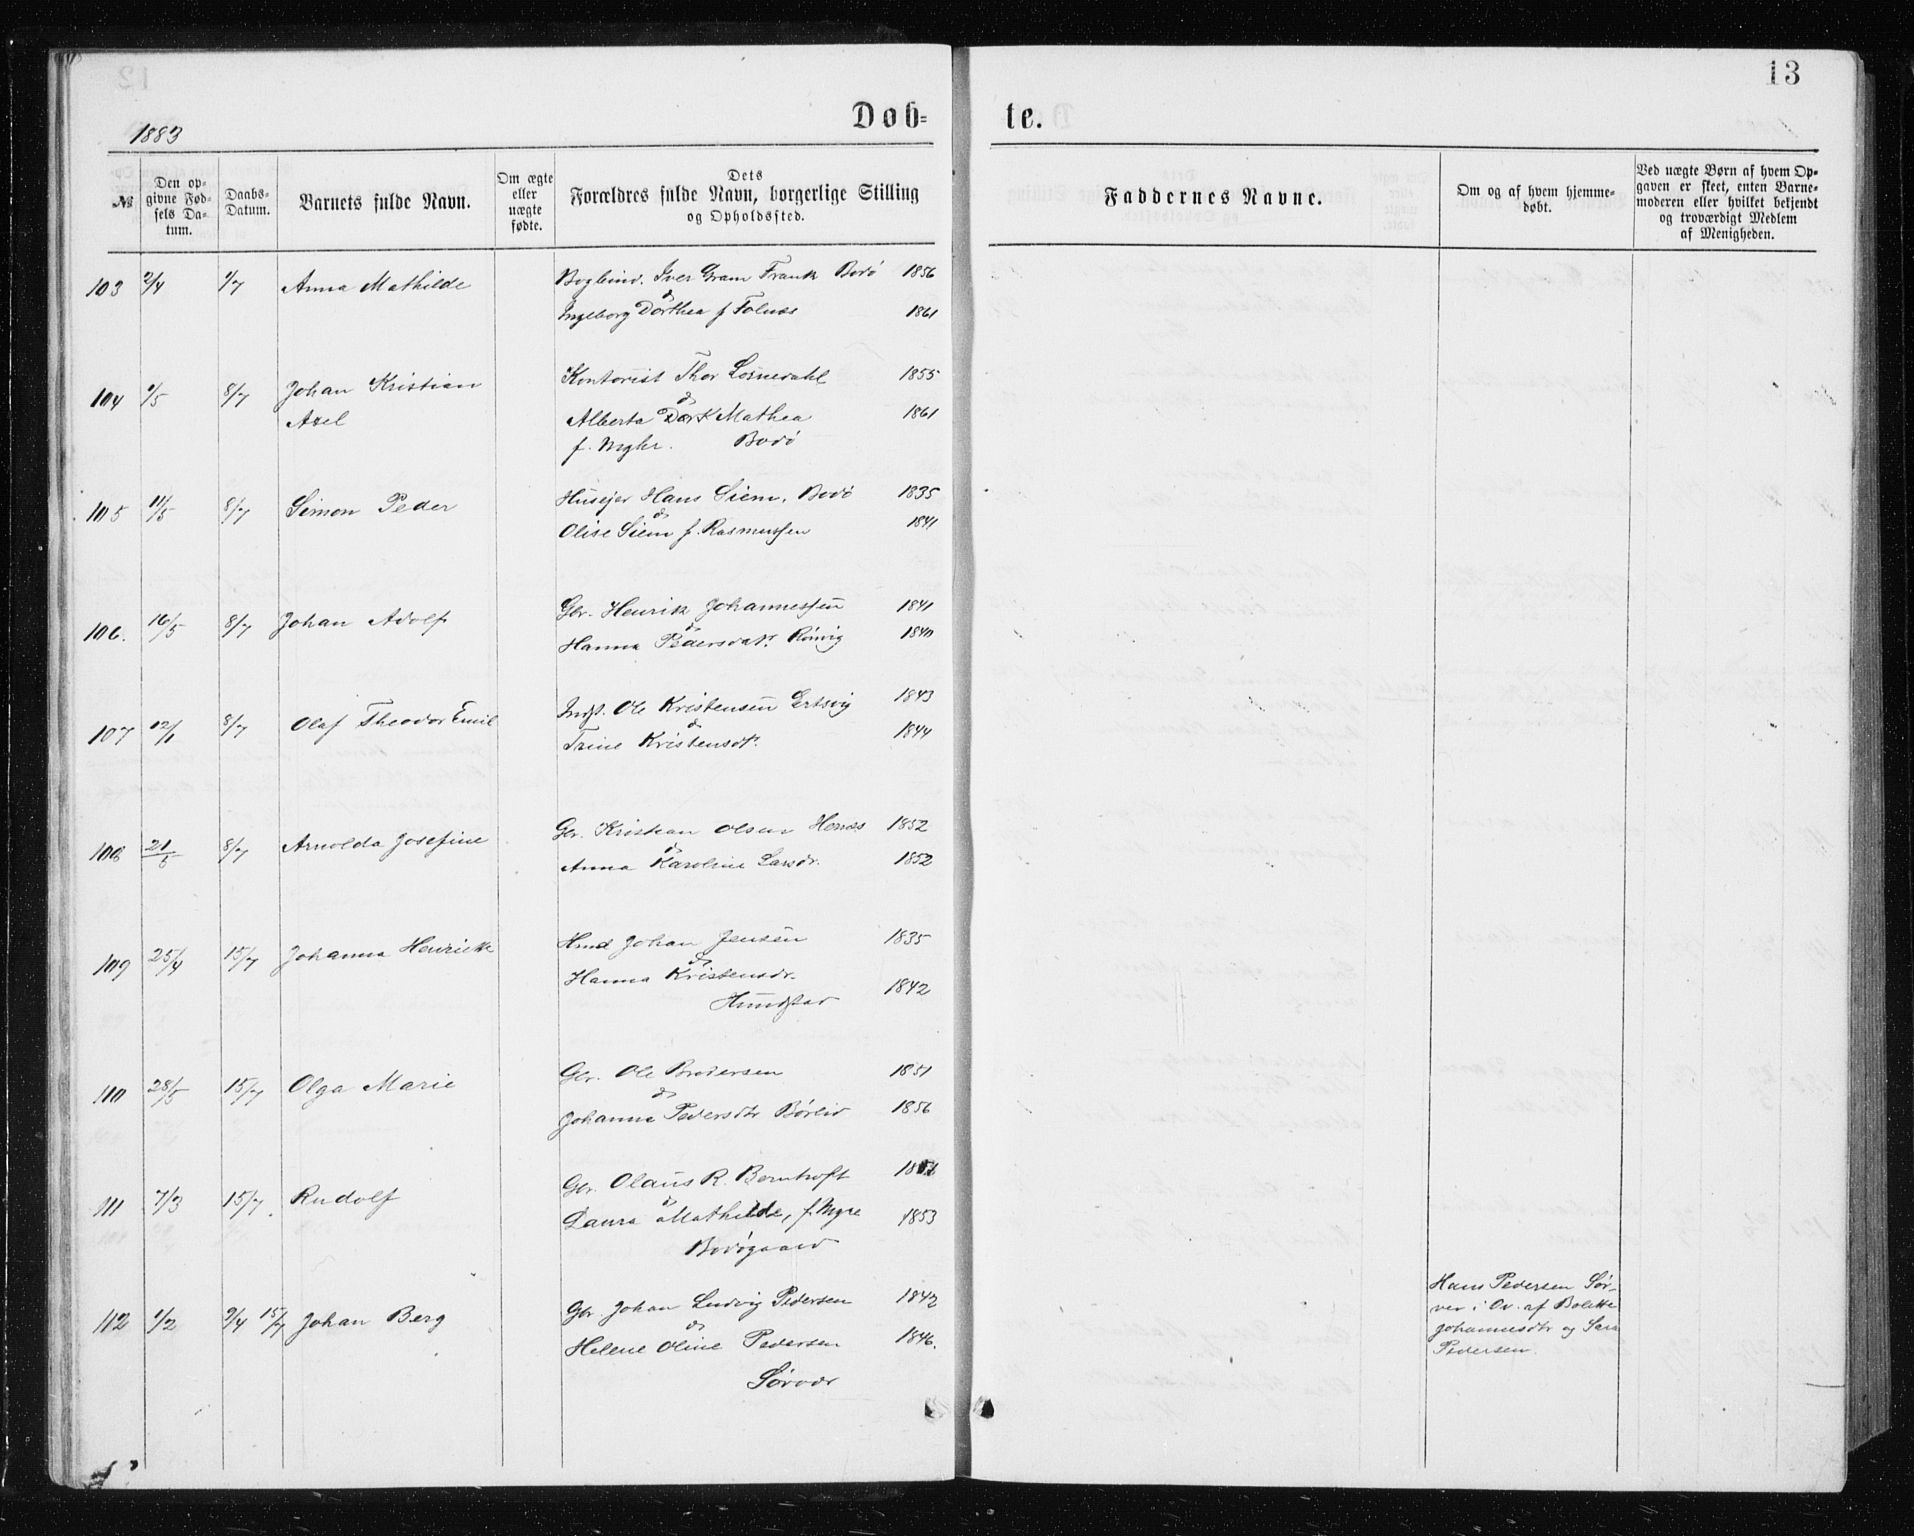 13
Døb=
te.
1883
№
Den op-
givne Fød-
sels Da-
tum.
Daabs-
Datum.
Barnets fulde Navn.
Om ægte
eller
uægte
fødte.
Dets
Forældres fulde Navn, borgerlige Stilling
og Opholdssted.
Faddernes Navne.
Om og af hvem hjemme-
døbt.
Ved uægte Børn af hvem Op-
gaven er skeet, enten Barne-
moderen eller hvilket bekjendt
og troværdigt Medlem
af Menigheden.
103 2/4 1/7 Anna Mathilde
Bogbind. Iver Gram Frank Bodø 1856
&
Ingeborg Dorthea f Folnæs 1861
104 1/5 8/7 Johan Kristian
Axel
Kontorist Thor 1855
&
Alberta Mathea 1861
f. Myhr. Bodø
105 11/5 8/7 Simon Peder
Husejer Hans Siem, Bodø 1835
&
Olise Siem f. Rasmussen 1841
106. 16/5 8/7 Johan Adolf
Gbr. Henrik Johannessen 1841
&
Hanna Pedersdatr. Rönvig 1840
107 12/1 8/7 Olaf Theodor Emil
Indst. Ole Kristensen Ertsvig 1843
&
Trine Kristensdtr. 1844
108 21/5 8/7 Arnolda Josefine
Gbr. Kristian Olsen Hernes 1852
&
Anna Karoline Larsdr. 1852
109 25/4 15/7 Johanna Henriette
Hmd Johan Jensen 1835
&
Hanna Kristensdr.
Hundstad 1842
110 28/5 15/7 Olga Marie
Gbr. Ole Brodersen 1851
&
Johanna Pedersdtr Börlid 1856
111 7/3 15/7. Rudolf
Gbr. Olaus R. Berntsoft
&
Laura Mathilde, f. Myre 1853
Bodøgaard
112 1/2 2/4 15/7 Johan Berg
Gbr Johan Ludvig Pedersen 1842
&
Helene Oline Pedersen 1846.
Sörvær
Hans Pedersen Sör-
vær i Ov. af Bolette
Johannesdtr og Sara
Pedersen.